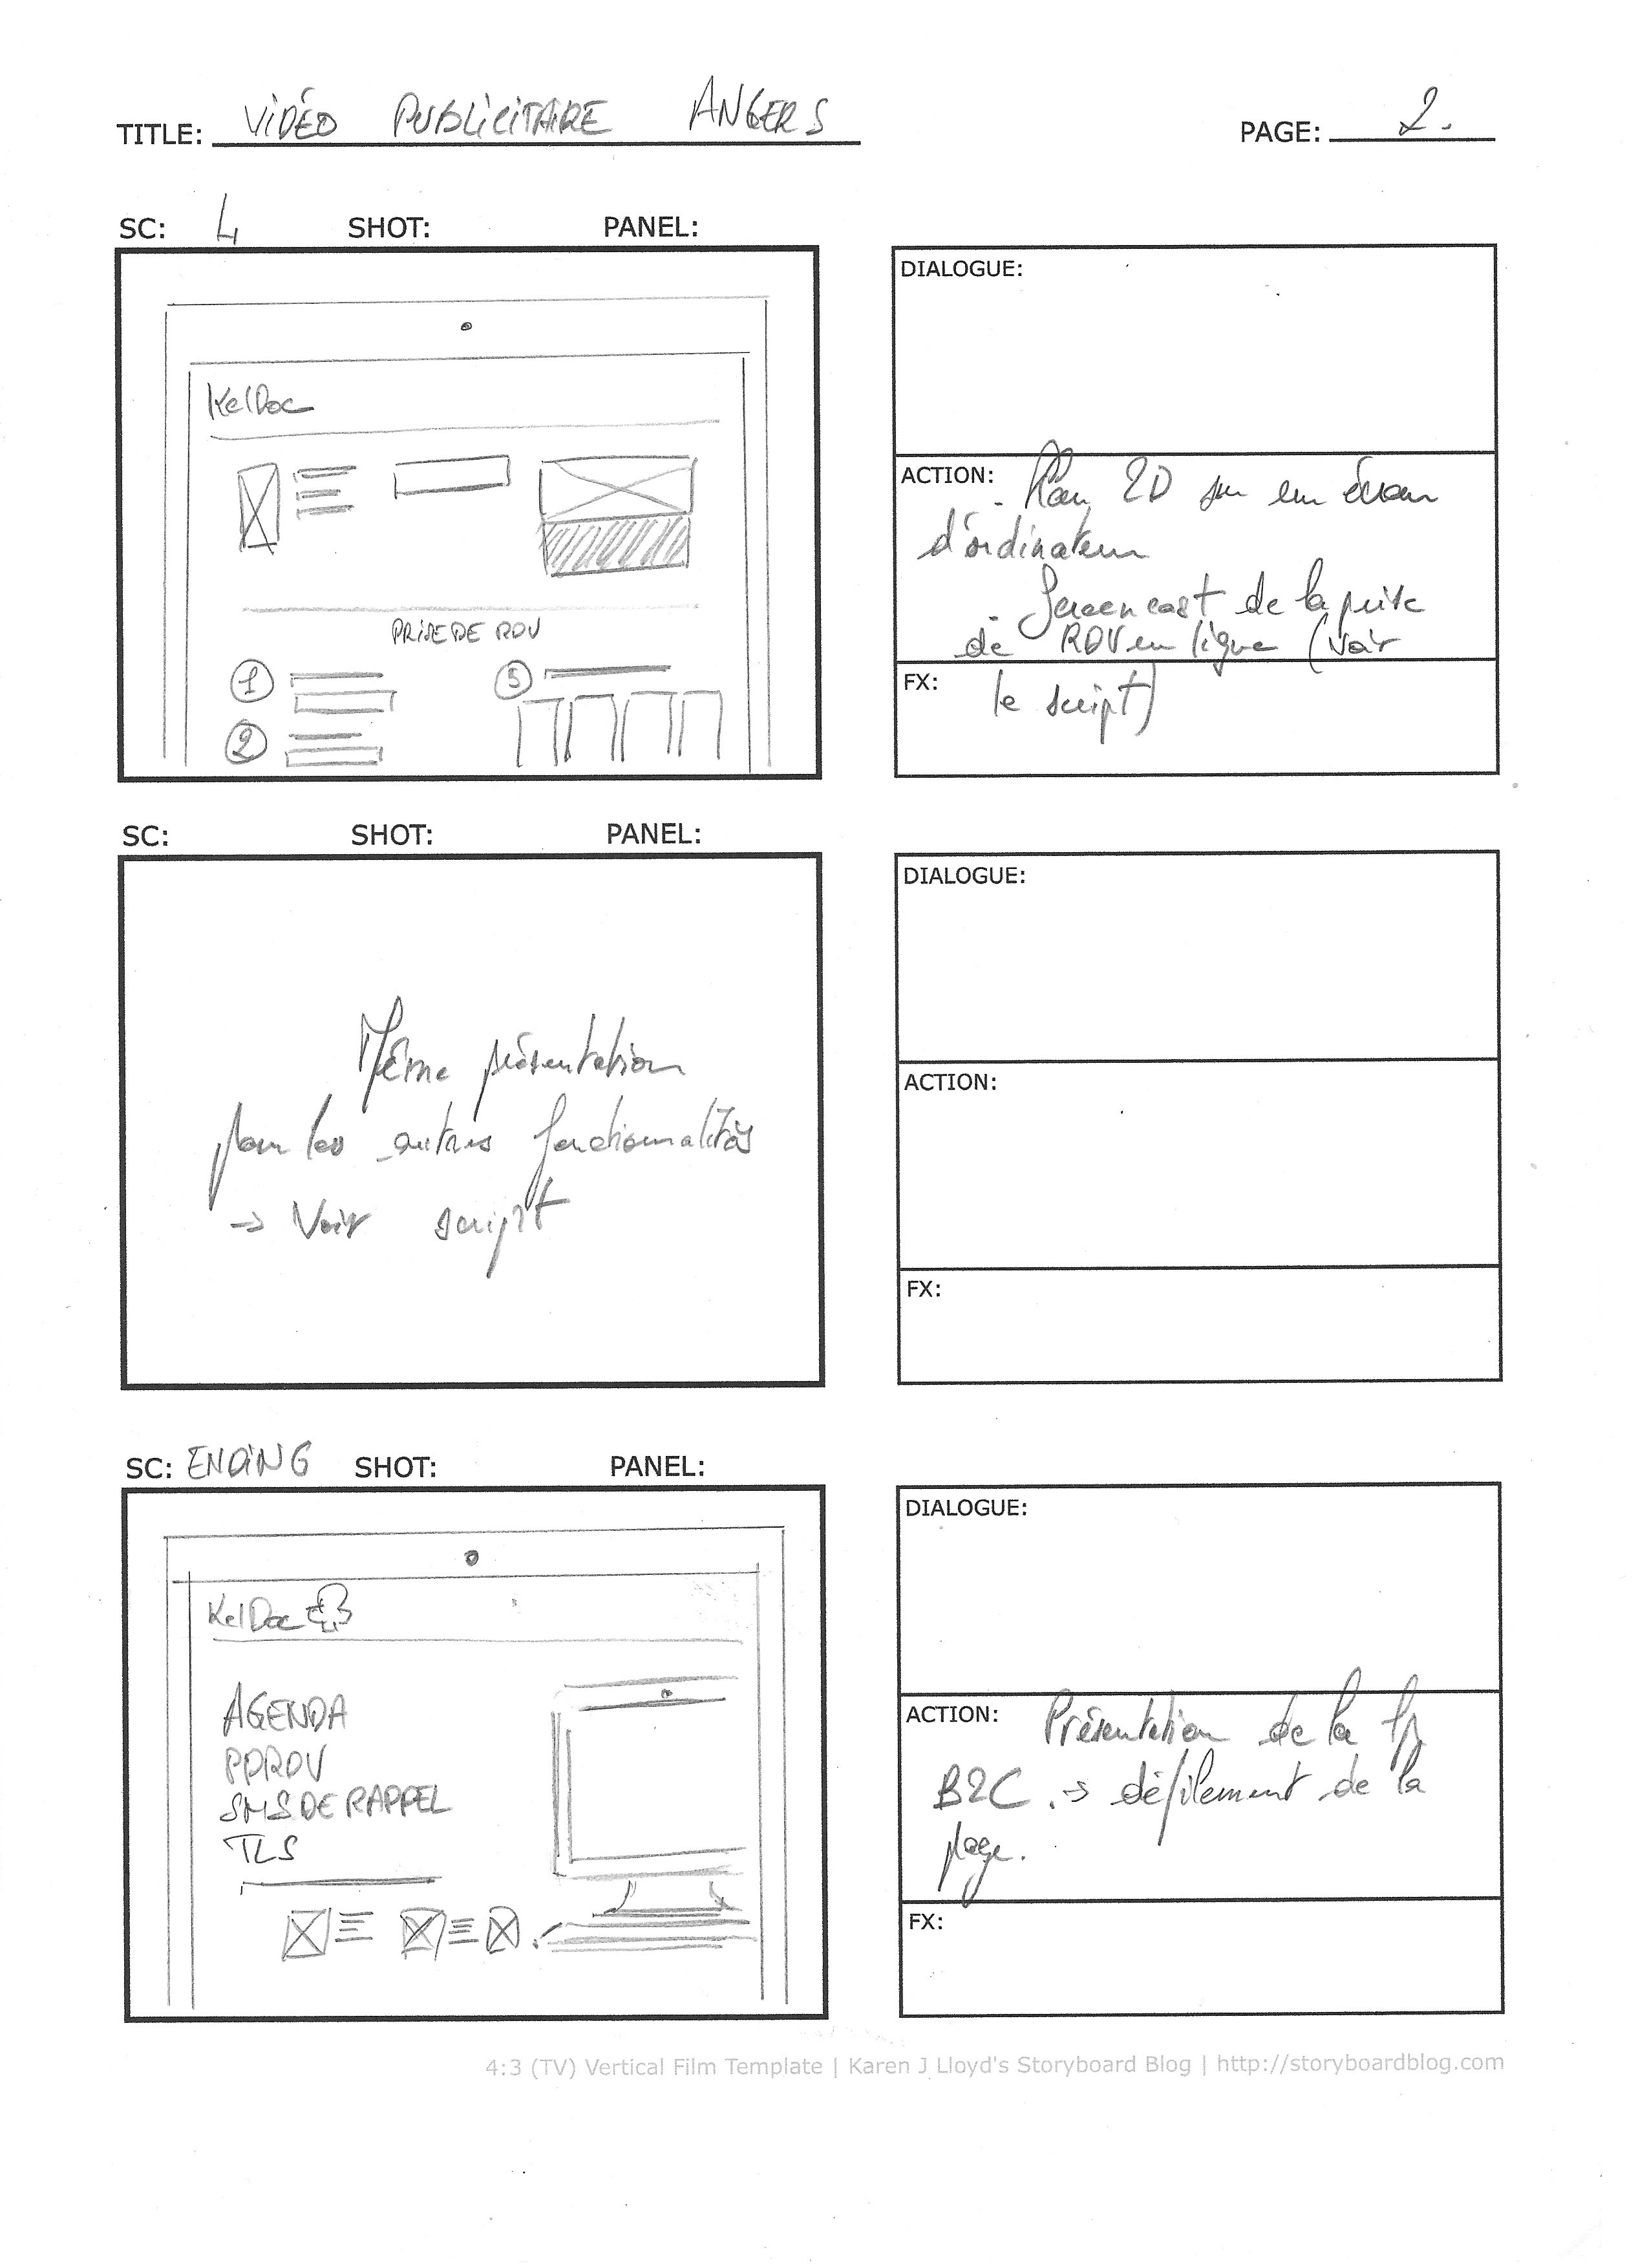 TITLE: VIDÉO PUBLICITAIRE ANGERS
PAGE: 2.
SC: 4 SHOT: PANEL:
KelDoc
PRISE DE RDV
1
3
2
DIALOGUE:
ACTION: - Plan 2D sur un écran
d'ordinateur
- Screencast de la prise
de RDV en ligne (voir
FX: le script)
SC: SHOT: PANEL:
Même présentation
pour les autres fonctionnalités
→ Voir script
DIALOGUE:
ACTION:
FX:
SC: ENDING SHOT: PANEL:
KelDoc
AGENDA
PDRDV
SMS DE RAPPEL
TLS
DIALOGUE:
ACTION: Présentation de la
B2C → défilement de la
page.
FX:
4:3 (TV) Vertical Film Template | Karen J Lloyd's Storyboard Blog | http://storyboardblog.com